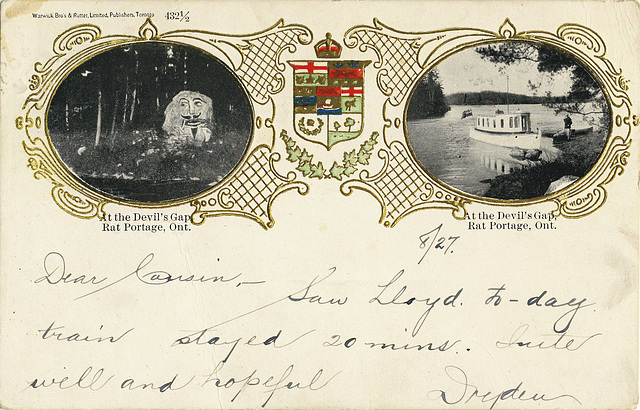 Warwick Bro's & Rutter, Limited, Publishers, Toronto 432½
At the Devil's Gap,
Rat Portage, Ont.
At the Devil's Gap,
Rat Portage, Ont.
8/27.
Dear Cousin,—
Saw Lloyd. to-day.
train stayed 20 mins. Quite
well and hopeful
Dryden